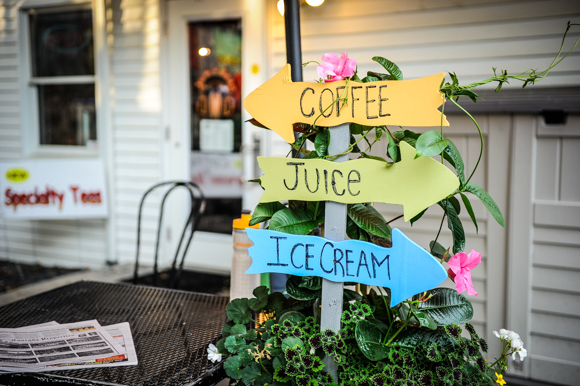 COFFEE
JUICE
ICE CREAM
Specialty Teas